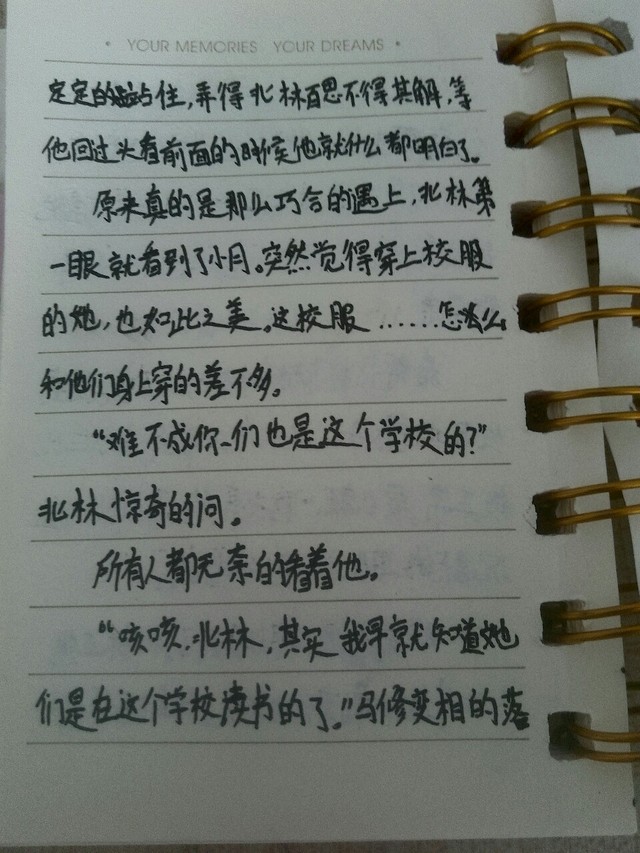 • YOUR MEMORIES YOUR DREAMS •
定定的站住，弄得北林百思不得其解，等
他回过头看前面的时候他就什么都明白了。
原来真的是那么巧合的遇上，北林第
一眼就看到了小月。突然觉得穿上校服
的她，也如此之美。这校服……怎么
和他们身上穿的差不多。
“难不成你们也是这个学校的？”
北林惊奇的问。
所有人都无奈的看着他。
“咳咳，北林，其实我早就知道她
们是在这个学校读书的了。”马修变相的落